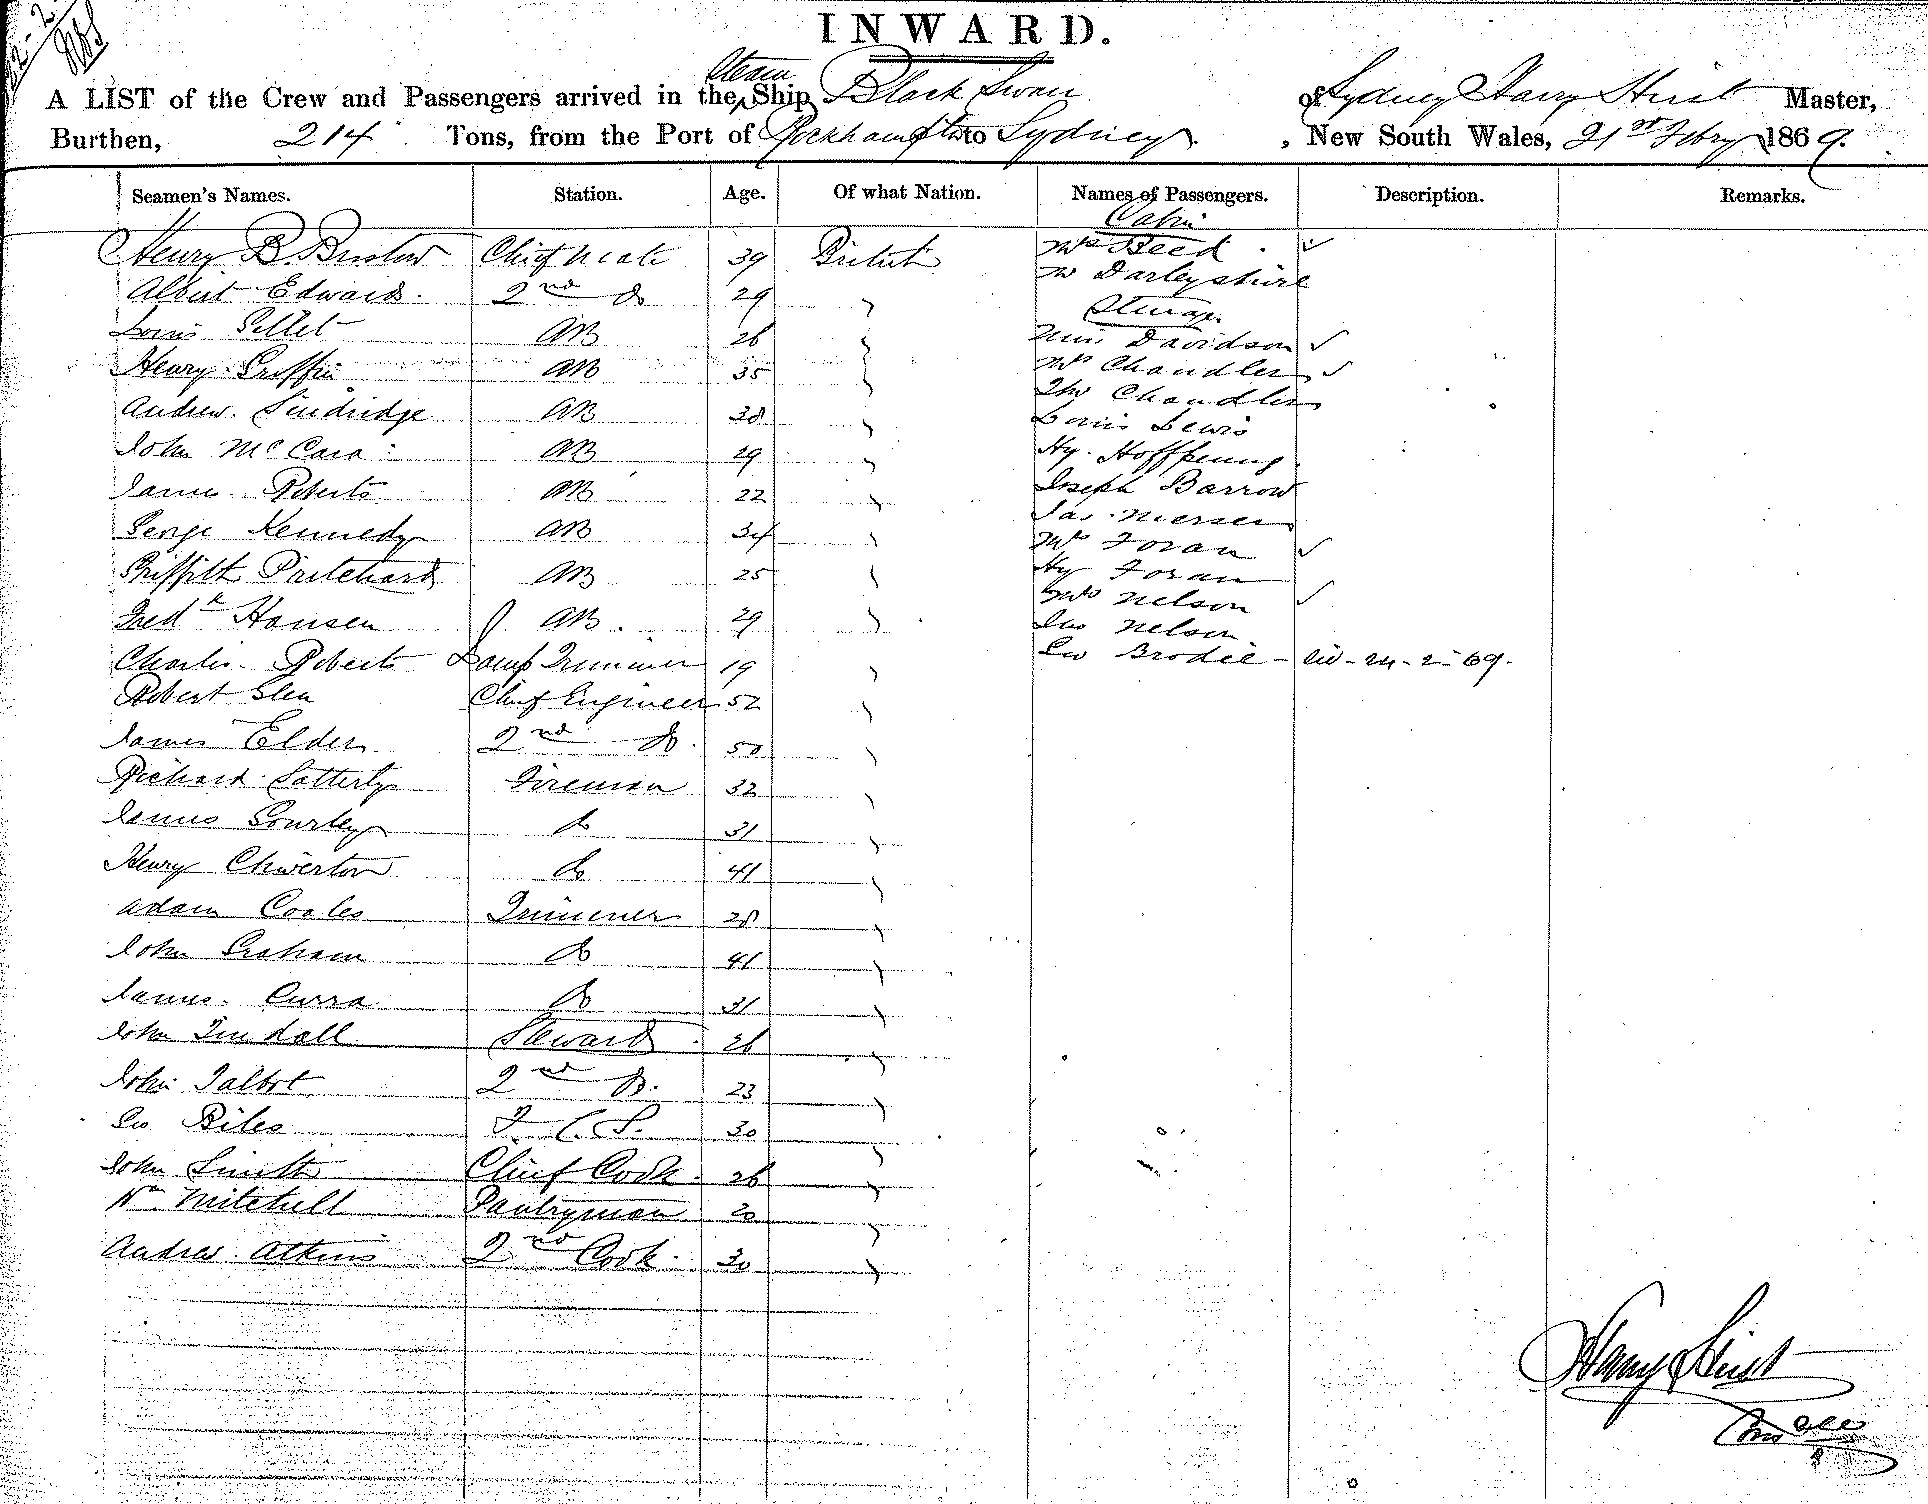 INWARD.
A LIST of the Crew and Passengers arrived in the Steam Ship Black Swan of Sydney Harry Hirst Master,
Burthen, 214 Tons, from the Port of Rockhampton to Sydney , New South Wales, 21st Febry 1869.
Seamen's Names. Station. Age. Of what Nation. Names of Passengers. Description. Remarks.
Cabin
Henry B. Bristow Chief Mate 39 British Mrs Steed
Mr Darleyshire
Albert Edwards 2nd Do 29
Steerage
Louis Pellet AB 26 Miss Davidson
Henry Griffin AB 35 Mrs Chandler
Thos Chandler
Andrew AB 38 Louis Lewis
John McCara AB 29 Hy. Hoffnung
James Roberts AB 22 Joseph Barrow
Jas.
George Kennedy AB 34 Mrs Foran
Griffith Pritchard AB 25 Hy Foran
Mrs Nelson
Fredk Hansen AB. 29 Jas Nelson.
Charles Roberts Lamp Trimmer 19 Ew Brodie - 24-2-69.
Robert Glen Chief Engineer 52
James Elder 2nd Do. 50
Richard Satterly Fireman 32
James Gourley Do 31
Henry Chiverton Do 41
Adam Coales Trimmer 28
John Graham Do 41
James Curra Do 31
John Tindall Steward 26
John Talbot 2nd Do. 23
Ew Biles F. C. S. 30
John Smith Chief Cook. 26
Wm Mitchell Pantryman 20
Andrew Atkins 2nd Cook. 30
Harry Hirst